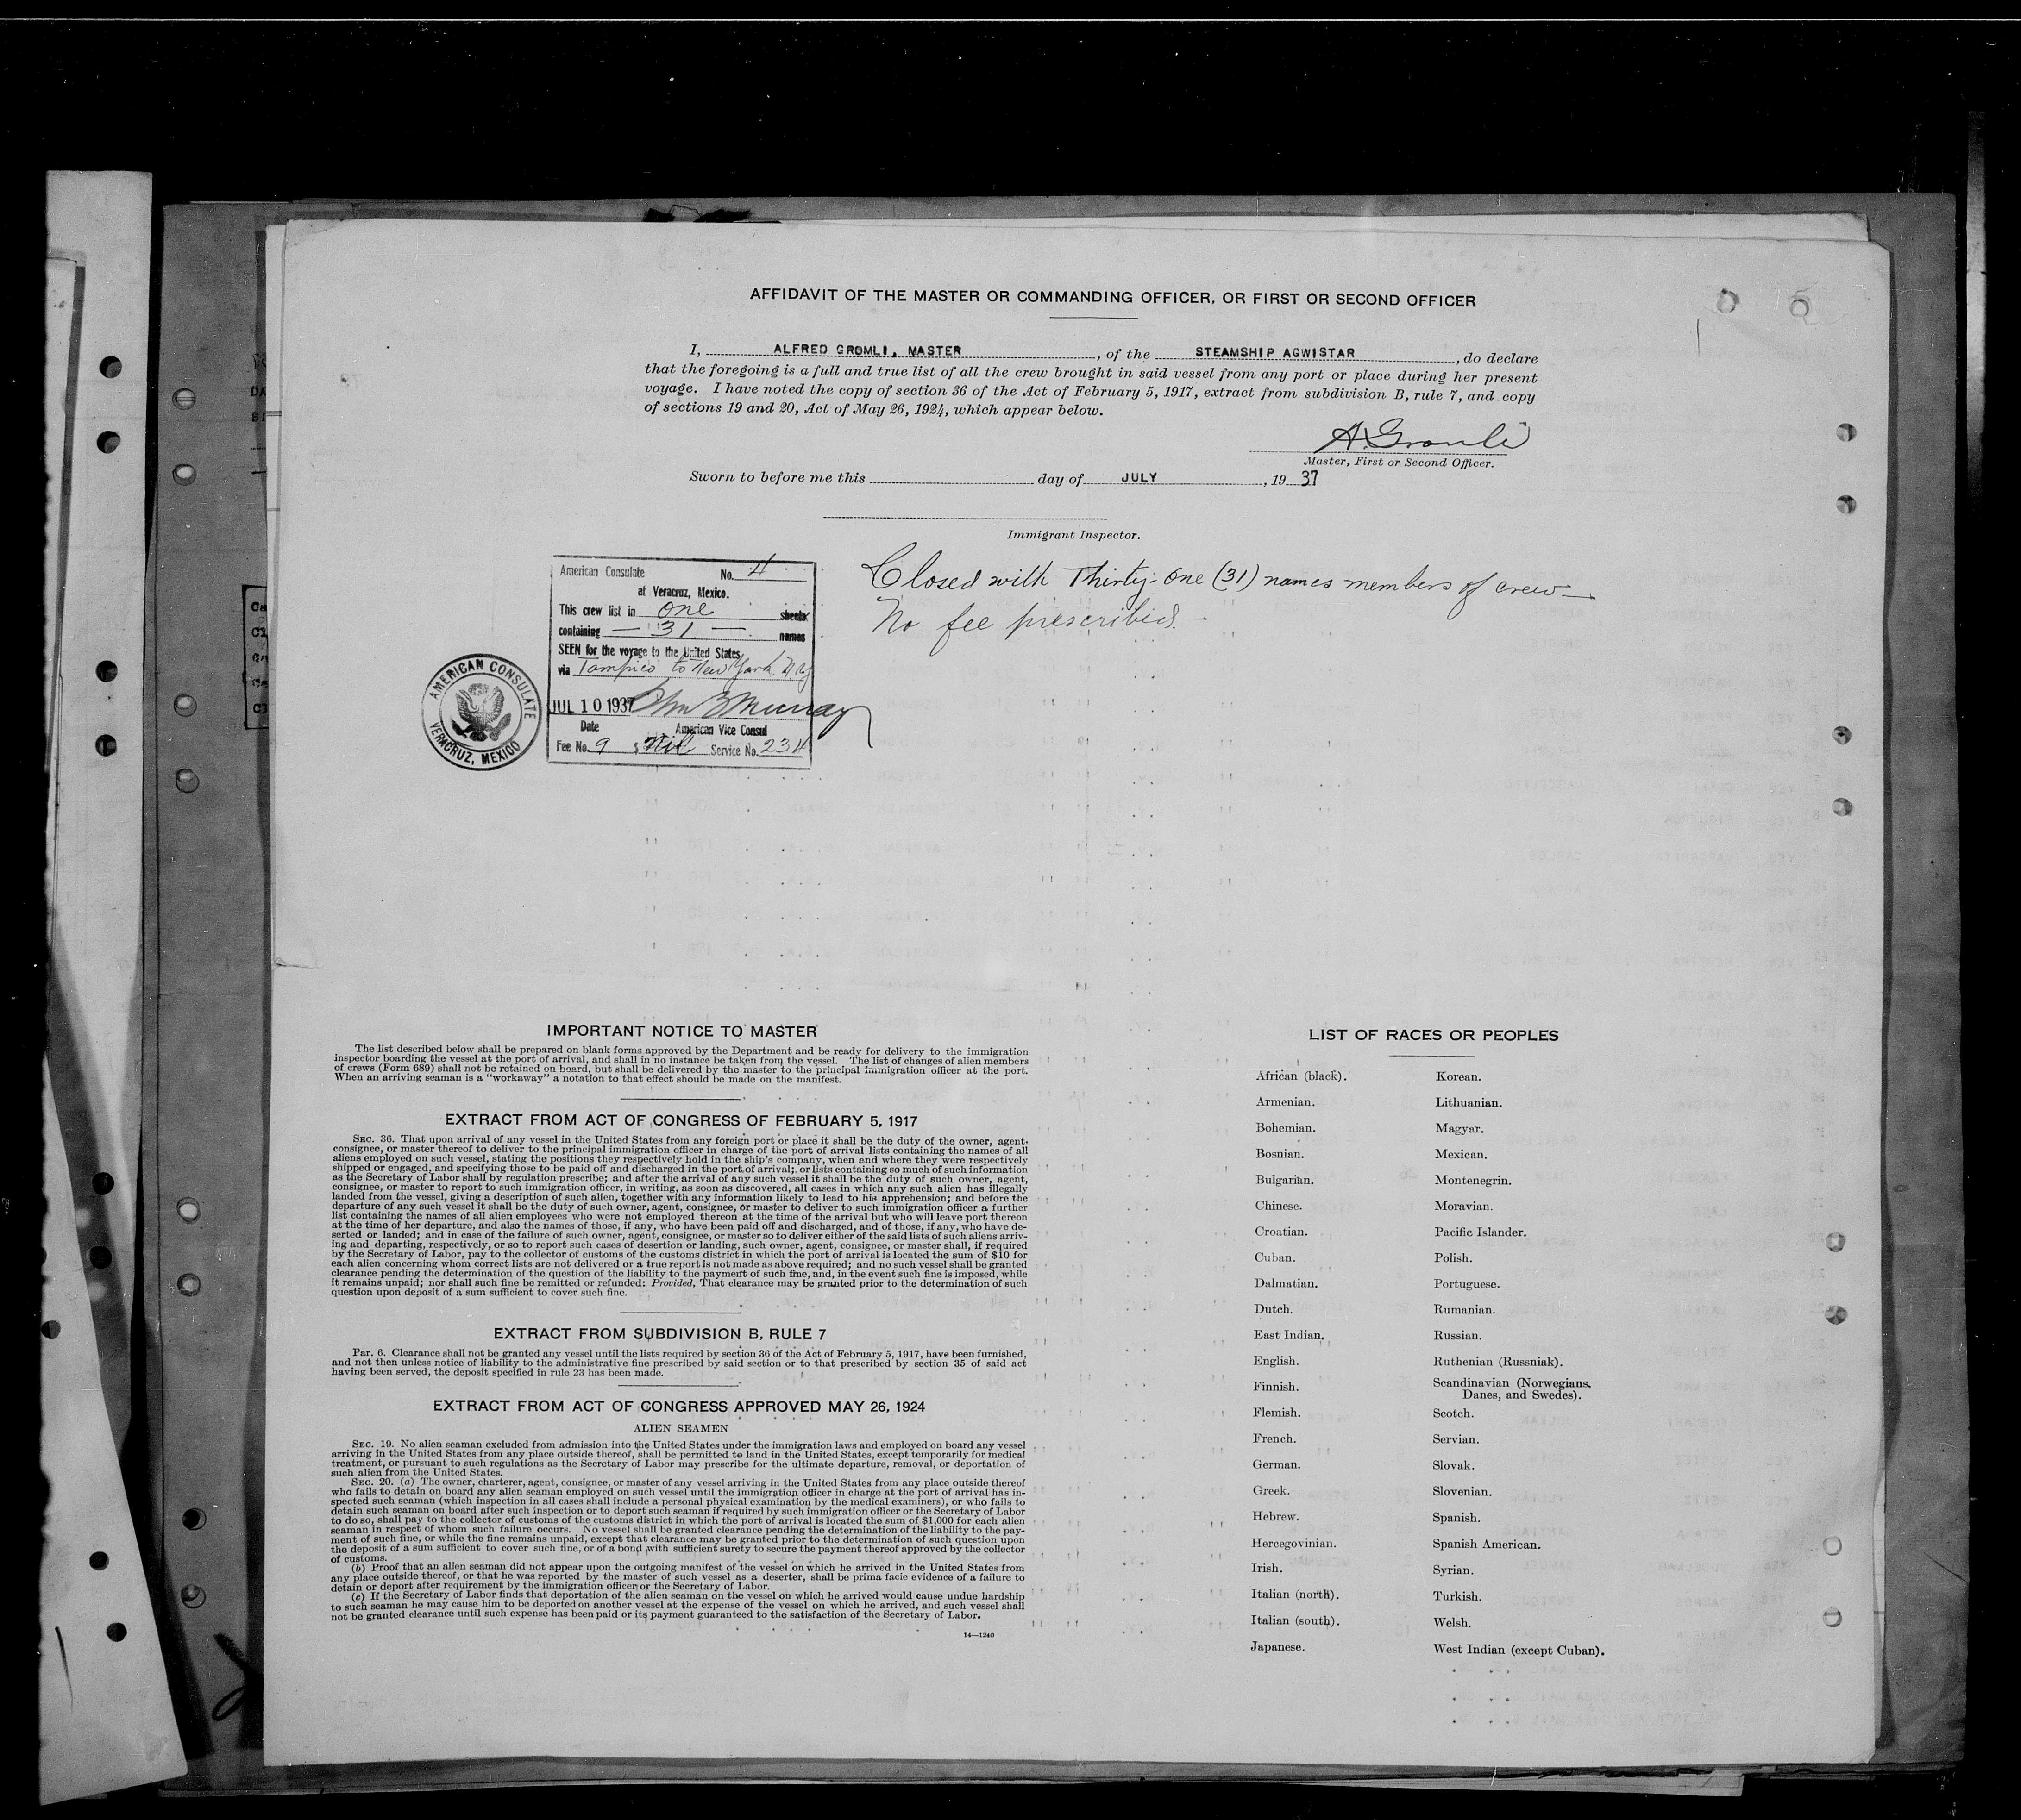 AFFIDAVIT OF THE MASTER OR COMMANDING OFFICER, OR FIRST OR SECOND OFFICER
I, ALFRED GROMLI, MASTER, of the STEAMSHIP AGWISTAR, do declare
that the foregoing is a full and true list of all the crew brought in said vessel from any port or place during her present
voyage. I have noted the copy of section 36 of the Act of February 5, 1917, extract from subdivision B, rule 7, and copy
of sections 19 and 20, Act of May 26, 1924, which appear below.
A. Gromli
Master, First or Second Officer.
Sworn to before me this day of JULY, 19 37
Immigrant Inspector.
American Consulate No. 4
at Veracruz, Mexico.
This crew list in one sheets
containing — 31 — names
SEEN for the voyage to the United States
via Tampico to New York N.Y.
JUL 10 1937 Murray
Date American Vice Consul
Fee No. 9 $ Nil Service No. 234
AMERICAN CONSULATE
VERACRUZ, MEXICO
Closed with Thirty-one (31) names members of crew—
No fee prescribed.-
IMPORTANT NOTICE TO MASTER
The list described below shall be prepared on blank forms approved by the Department and be ready for delivery to the immigration
inspector boarding the vessel at the port of arrival, and shall in no instance be taken from the vessel. The list of changes of alien members
of crews (Form 689) shall not be retained on board, but shall be delivered by the master to the principal immigration officer at the port.
When an arriving seaman is a "workaway" a notation to that effect should be made on the manifest.
EXTRACT FROM ACT OF CONGRESS OF FEBRUARY 5, 1917
SEC. 36. That upon arrival of any vessel in the United States from any foreign port or place it shall be the duty of the owner, agent,
consignee, or master thereof to deliver to the principal immigration officer in charge of the port of arrival lists containing the names of all
aliens employed on such vessel, stating the positions they respectively hold in the ship's company, when and where they were respectively
shipped or engaged, and specifying those to be paid off and discharged in the port of arrival; or lists containing so much of such information
as the Secretary of Labor shall by regulation prescribe; and after the arrival of any such vessel it shall be the duty of such owner, agent,
consignee, or master to report to such immigration officer, in writing, as soon as discovered, all cases in which any such alien has illegally
landed from the vessel, giving a description of such alien, together with any information likely to lead to his apprehension; and before the
departure of any such vessel it shall be the duty of such owner, agent, consignee, or master to deliver to such immigration officer a further
list containing the names of all alien employees who were not employed thereon at the time of the arrival but who will leave port thereon
at the time of her departure, and also the names of those, if any, who have been paid off and discharged, and of those, if any, who have de-
serted or landed; and in case of the failure of such owner, agent, consignee, or master so to deliver either of the said lists of such aliens arriv-
ing and departing, respectively, or so to report such cases of desertion or landing, such owner, agent, consignee, or master shall, if required
by the Secretary of Labor, pay to the collector of customs of the customs district in which the port of arrival is located the sum of $10 for
each alien concerning whom correct lists are not delivered or a true report is not made as above required; and no such vessel shall be granted
clearance pending the determination of the question of the liability to the payment of such fine, and, in the event such fine is imposed, while
it remains unpaid; nor shall such fine be remitted or refunded: Provided, That clearance may be granted prior to the determination of such
question upon deposit of a sum sufficient to cover such fine.
EXTRACT FROM SUBDIVISION B, RULE 7
Par. 6. Clearance shall not be granted any vessel until the lists required by section 36 of the Act of February 5, 1917, have been furnished,
and not then unless notice of liability to the administrative fine prescribed by said section or to that prescribed by section 35 of said act
having been served, the deposit specified in rule 23 has been made.
EXTRACT FROM ACT OF CONGRESS APPROVED MAY 26, 1924
ALIEN SEAMEN
SEC. 19. No alien seaman excluded from admission into the United States under the immigration laws and employed on board any vessel
arriving in the United States from any place outside thereof, shall be permitted to land in the United States, except temporarily for medical
treatment, or pursuant to such regulations as the Secretary of Labor may prescribe for the ultimate departure, removal, or deportation of
such alien from the United States.
SEC. 20. (a) The owner, charterer, agent, consignee, or master of any vessel arriving in the United States from any place outside thereof
who fails to detain on board any alien seaman employed on such vessel until the immigration officer in charge at the port of arrival has in-
spected such seaman (which inspection in all cases shall include a personal physical examination by the medical examiners), or who fails to
detain such seaman on board after such inspection or to deport such seaman if required by such immigration officer or the Secretary of Labor
to do so, shall pay to the collector of customs of the customs district in which the port of arrival is located the sum of $1,000 for each alien
seaman in respect of whom such failure occurs. No vessel shall be granted clearance pending the determination of the liability to the pay-
ment of such fine, or while the fine remains unpaid, except that clearance may be granted prior to the determination of such question upon
the deposit of a sum sufficient to cover such fine, or of a bond with sufficient surety to secure the payment thereof approved by the collector
of customs.
(b) Proof that an alien seaman did not appear upon the outgoing manifest of the vessel on which he arrived in the United States from
any place outside thereof, or that he was reported by the master of such vessel as a deserter, shall be prima facie evidence of a failure to
detain or deport after requirement by the immigration officer or the Secretary of Labor.
(c) If the Secretary of Labor finds that deportation of the alien seaman on the vessel on which he arrived would cause undue hardship
to such seaman he may cause him to be deported on another vessel at the expense of the vessel on which he arrived, and such vessel shall
not be granted clearance until such expense has been paid or its payment guaranteed to the satisfaction of the Secretary of Labor.
14—1240
LIST OF RACES OR PEOPLES
African (black). Korean.
Armenian. Lithuanian.
Bohemian. Magyar.
Bosnian. Mexican.
Bulgarian. Montenegrin.
Chinese. Moravian.
Croatian. Pacific Islander.
Cuban. Polish.
Dalmatian. Portuguese.
Dutch. Rumanian.
East Indian. Russian.
English. Ruthenian (Russniak).
Finnish. Scandinavian (Norwegians,
Danes, and Swedes).
Flemish. Scotch.
French. Servian.
German. Slovak.
Greek. Slovenian.
Hebrew. Spanish.
Hercegovinian. Spanish American.
Irish. Syrian.
Italian (north). Turkish.
Italian (south). Welsh.
Japanese. West Indian (except Cuban).